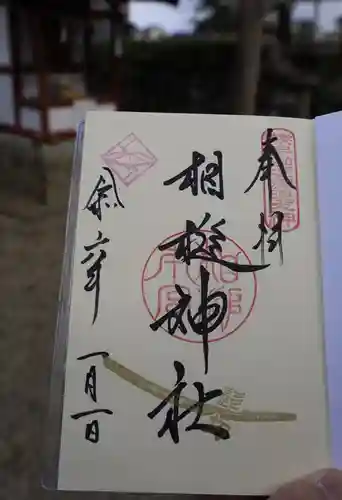 奉拝
相槌神社
令和六年
一月一日